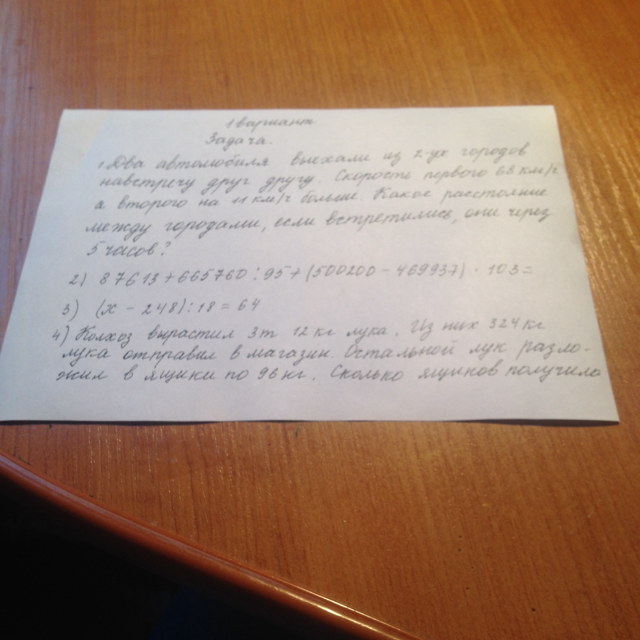 1 вариант
Задача.
1. Два автомобиля выехали из 2-ух городов
навстречу друг другу. Скорость первого 63 км/г
а второго на 11 км/г больше. Какое расстояние
между городами, если встретились, они через
5 часов?
2) 87613+665760:95+(500200-469937)·103=
3) (x-248):18=64
4) Колхоз вырастил 3т 12кг лука. Из них 324кг
лука отправил в магазин. Остальной лук разло-
жил в ящики по 96 кг. Сколько ящиков получило